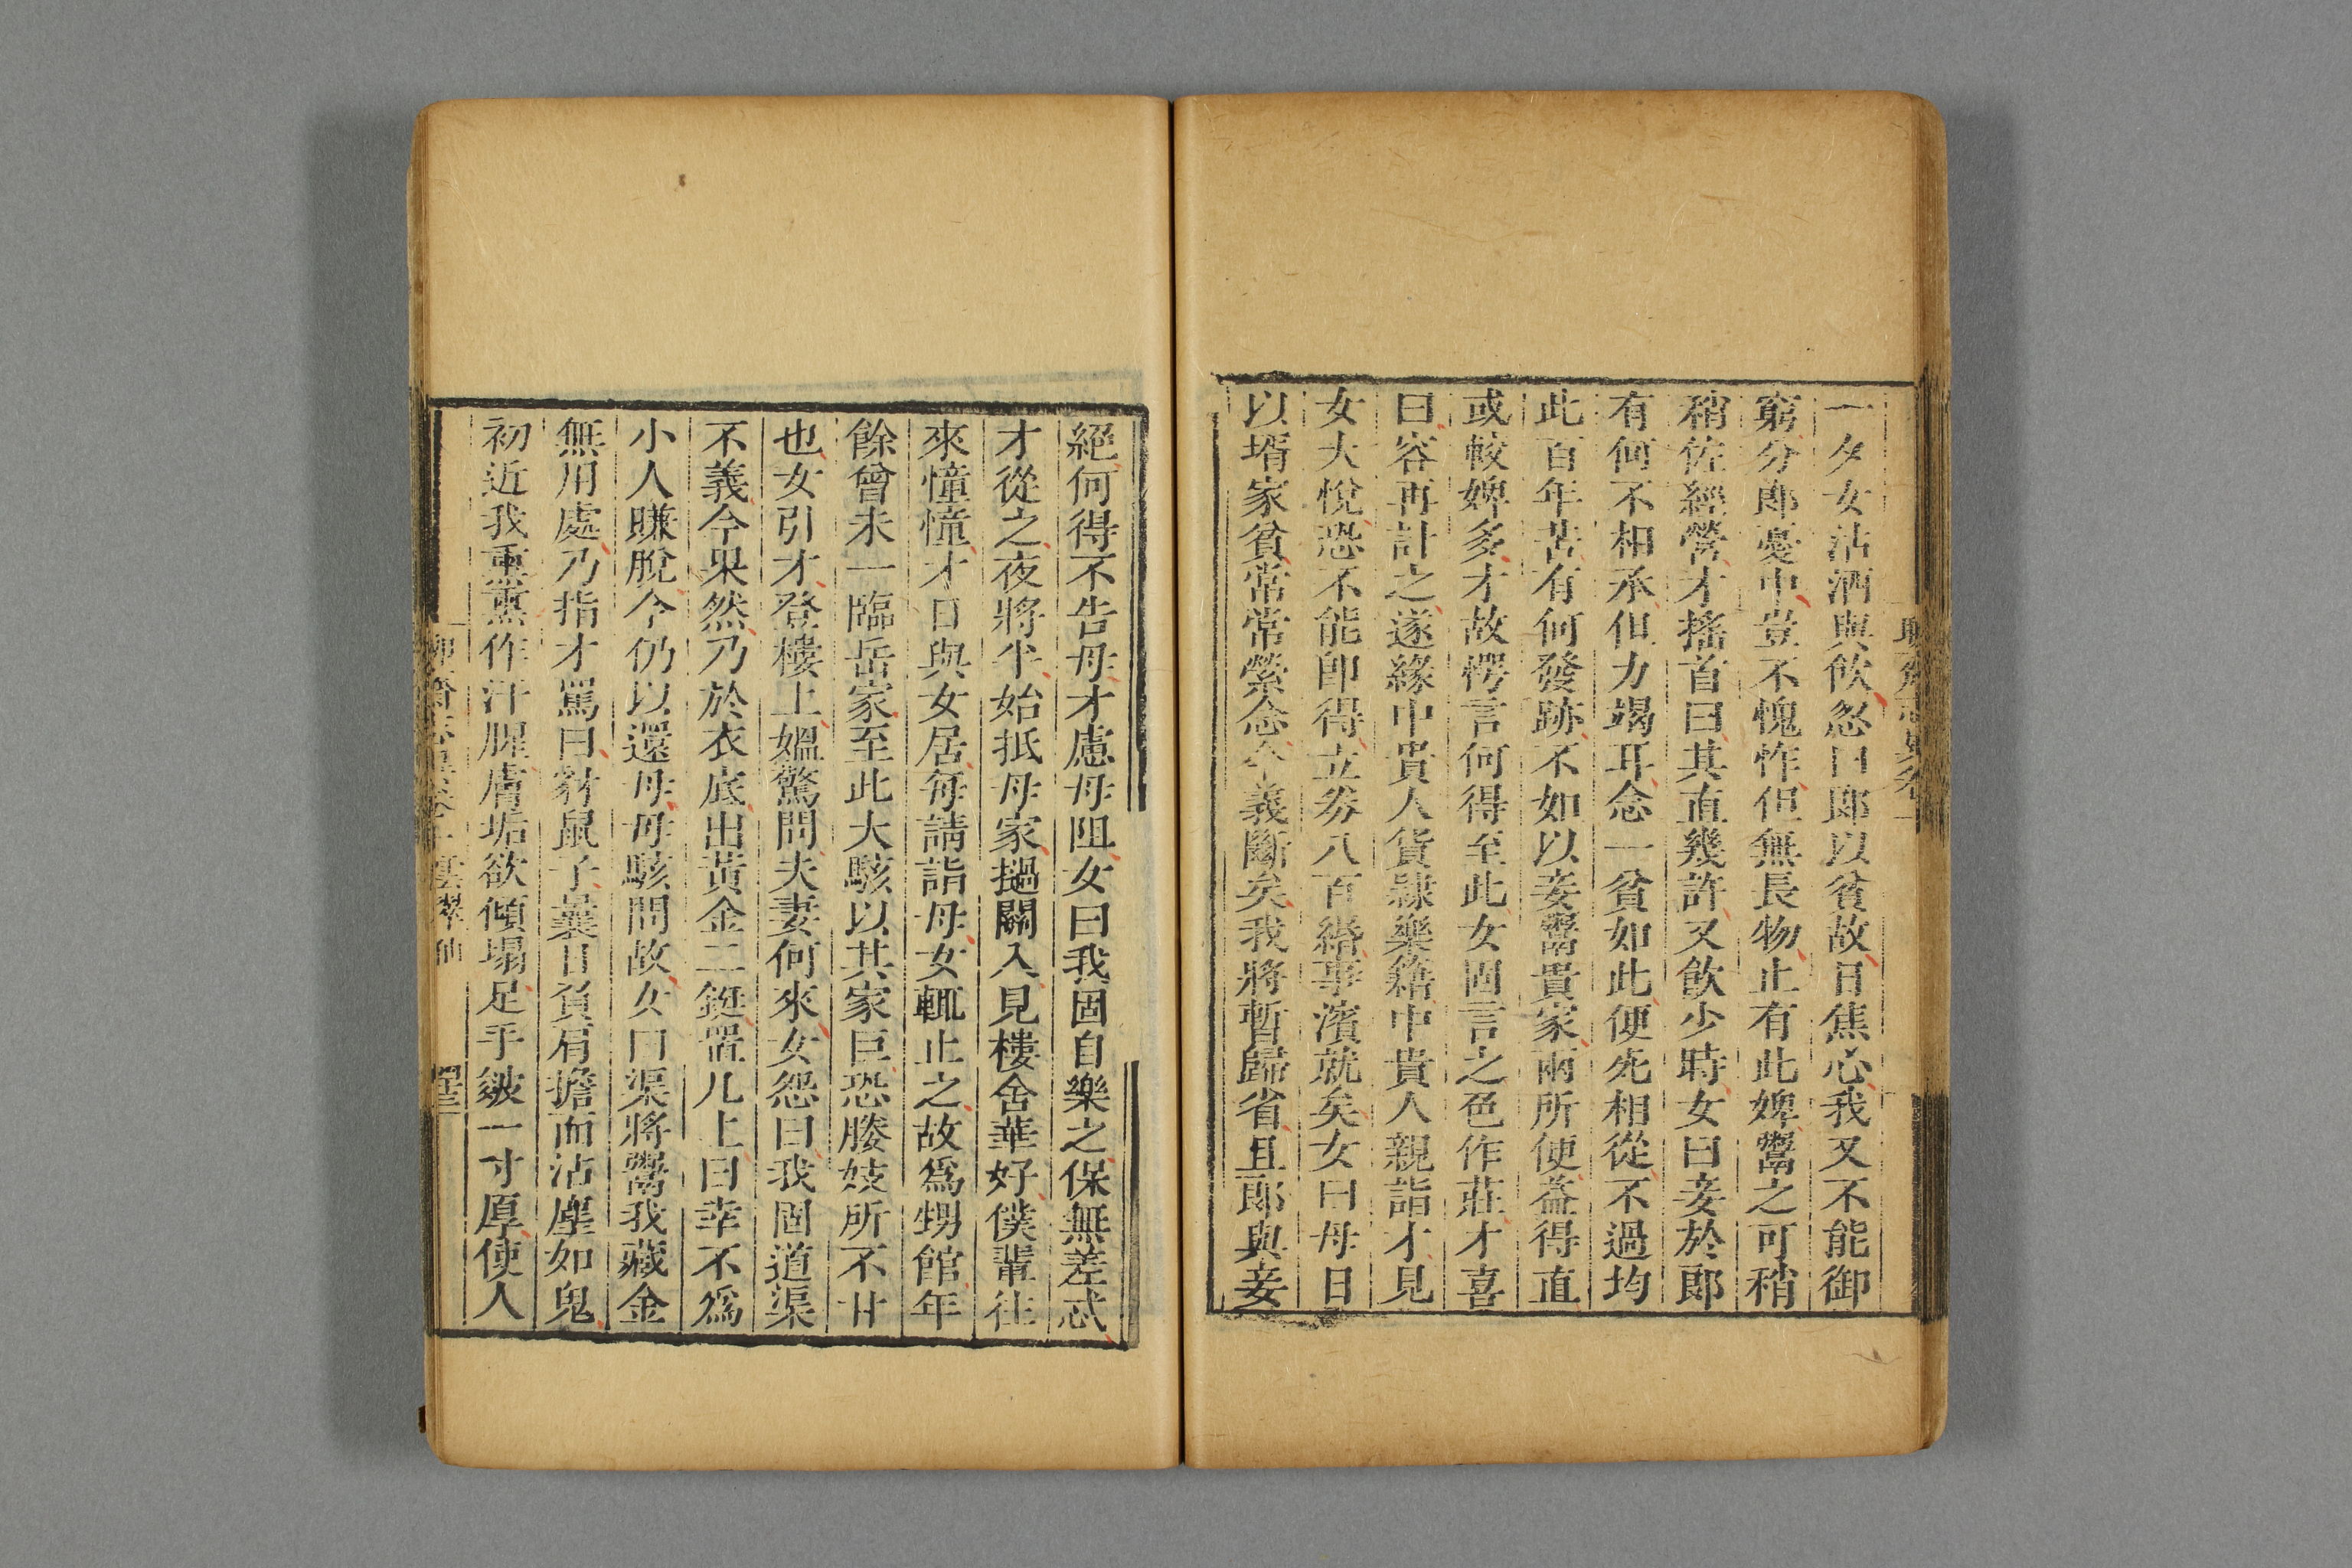 一夕女沽酒與飲忽曰郎以貧故日焦心我又不能御
窮分郎憂中豈不愧怍但無長物止有此婢鬻之可稍
稍佐經營才搖首曰其直幾許又飲少時女曰妾於郎
有何不相承但力竭耳念一貧如此便死相從不過均
此百年苦有何發跡不如以妾鬻貴家兩所便益得直
或較婢多才故愕言何得至此女固言之色作莊才喜
曰容再計之遂緣中貴人貨隸樂籍中貴人親詣才見
女大悅恐不能卽得立劵八百緡事濱就矣女曰母日
以壻家貧常常縈念今義斷矣我將暫歸省且郎與妾
絕何得不告母才慮母阻女曰我固自樂之保無差忒
才從之夜將半始抵母家撾闗入見樓舍華好僕輩往
來憧憧才日與女居每請詣母女輒止之故爲甥館年
餘曾未一臨岳家至此大駭以其家巨恐媵妓所不甘
也女引才登樓上媼驚問夫妻何來女怨曰我固道渠
不義今果然乃於衣底出黃金二鋌置几上曰幸不爲
小人賺脫今仍以還母母駭問故女曰渠將鬻我藏金
無用處乃指才罵曰豺鼠子曩日負肩擔而沾塵如鬼
初近我熏熏作汗腥膚垢欲傾塌足手皴一寸厚使人
雲翠仙